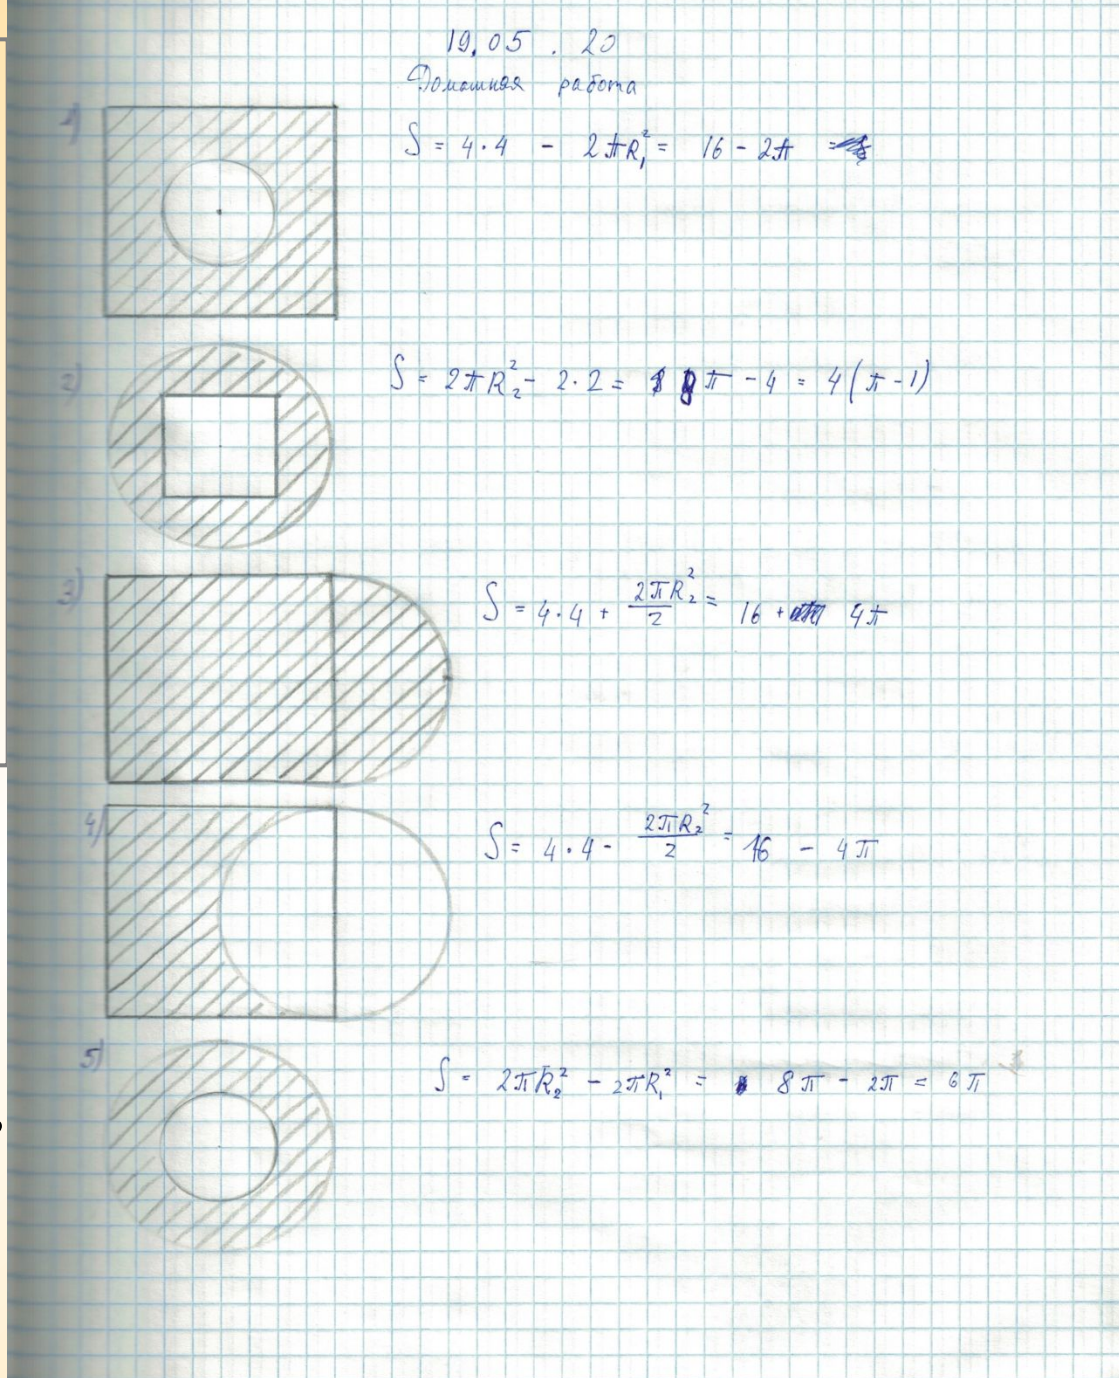 19.05.20
Домашная работа
1) S = 4·4 - 2πR₁² = 16 - 2π =
2) S = 2πR₂² - 2·2 = 8π - 4 = 4(π-1)
3) S = 4·4 + 2πR₂²/2 = 16 + 4π
4) S = 4·4 - 2πR₂²/2 = 16 - 4π
5) S = 2πR₂² - 2πR₁² = 8π - 2π = 6π